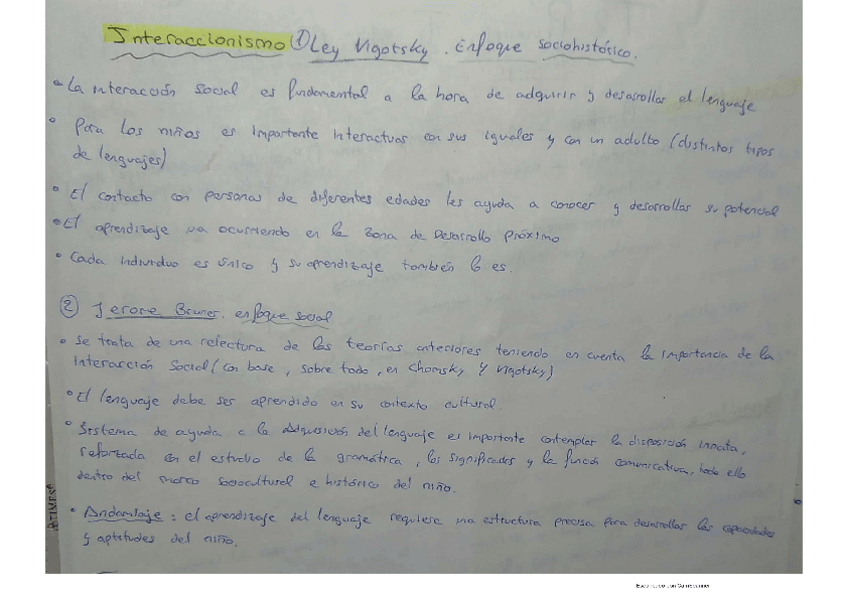 Interaccionismo ① Ley Vigotsky. Enfoque sociohistórico.
• La interacción social es fundamental a la hora de adquirir y desarrollar el lenguaje
• Para los niños es importante interactuar con sus iguales y con un adulto (distintos tipos
de lenguajes)
• El contacto con personas de diferentes edades les ayuda a conocer y desarrollar su potencial
• El aprendizaje va ocurriendo en la Zona de Desarrollo Próximo
• Cada individuo es único y su aprendizaje también lo es.
② Jerome Bruner. enfoque social
• Se trata de una relectura de las teorías anteriores teniendo en cuenta la importancia de la
Interacción Social (con base, sobre todo, en Chomsky y Vigotsky)
• El lenguaje debe ser aprendido en su contexto cultural.
• Sistema de ayuda a la Adquisición del lenguaje es importante contemplar la disposición innata,
reforzada con el estudio de la gramática, los significados y la función comunicativa, todo ello
dentro del marco sociocultural e histórico del niño.
• Andamiaje: el aprendizaje del lenguaje requiere una estructura precisa para desarrollar las capacidades
y aptitudes del niño.
Escaneado con CamScanner